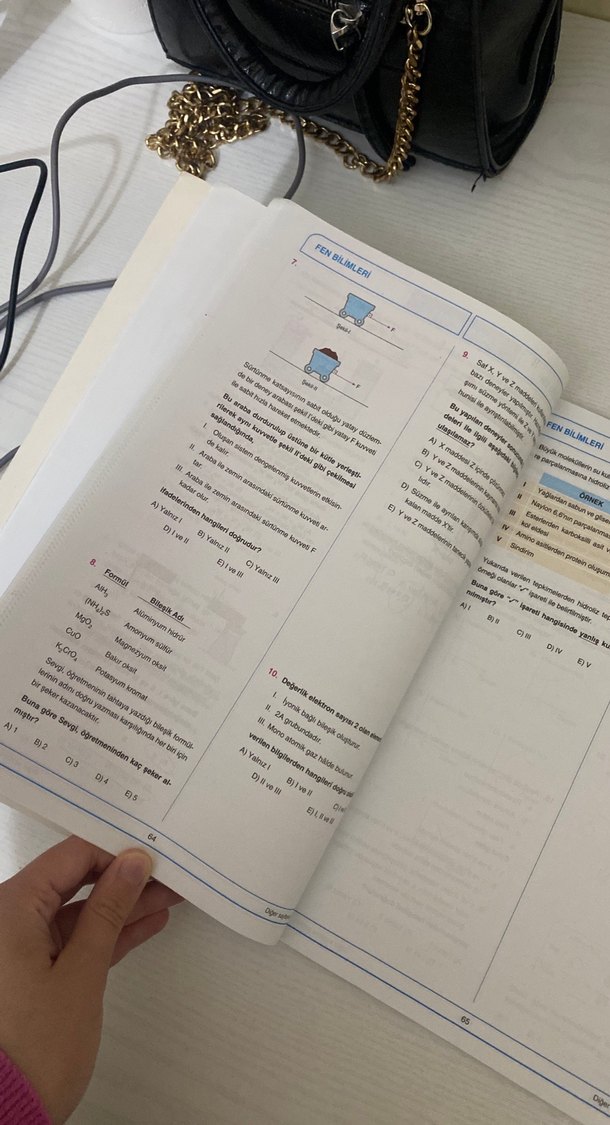 FEN BİLİMLERİ
7.
F
Şekil-I
F
Şekil-II
Sürtünme katsayısının sabit olduğu yatay düzlem-
de bir deney arabası şekil I'deki gibi yatay F kuvveti
ile sabit hızla hareket etmektedir.
Bu araba durdurulup üstüne bir kütle yerleşti-
rilerek aynı kuvvetle şekil II'deki gibi çekilmesi
sağlandığında;
I. Oluşan sistem dengelenmiş kuvvetlerin etkisin-
de kalır.
II. Araba ile zemin arasındaki sürtünme kuvveti ar-
tar.
III. Araba ile zemin arasındaki sürtünme kuvveti F
kadar olur.
ifadelerinden hangileri doğrudur?
A) Yalnız I
B) Yalnız II
C) Yalnız III
D) I ve II
E) I ve III
8.
Formül
Bileşik Adı
AlH₃
Alüminyum hidrür
(NH₄)₂S
Amonyum sülfür
MgO₂
Magnezyum oksit
CuO
Bakır oksit
K₂CrO₄
Potasyum kromat
Sevgi, öğretmeninin tahtaya yazdığı bileşik formül-
lerinin adını doğru yazması karşılığında her biri için
bir şeker kazanacaktır.
Buna göre Sevgi, öğretmeninden kaç şeker al-
mıştır?
A) 1
B) 2
C) 3
D) 4
E) 5
64
9. Saf X, Y ve Z maddeleri
bazı deneyler yapılmıştır.
süzme yöntemi ile Z
hunisi ile ayrıştırılabilmiştir.
Bu yapılan deneyler
deleri ile ilgili aşağıdaki
ulaşılamaz?
A) X maddesi Z içinde
B) Y ve Z maddelerinin
C) Y ve Z maddelerinin
lıdır.
D) Süzme ile ayrılan karışımda
kalan madde X'tir.
E) Y ve Z maddelerinin
10. Değerlik elektron sayısı 2 olan
I. İyonik bağlı bileşik oluşturur.
II. 2A grubundadır.
III. Mono atomik gaz hâlde bulunur.
verilen bilgilerden hangileri
A) Yalnız I
B) I ve II
D) II ve III
E) I, II ve III
Diğer
FEN BİLİMLERİ
moleküllerin su
parçalanmasına
ÖRNEK
Yağlardan sabun ve
Naylon 6,6'nın parçalanması
III
Esterlerden karboksilli asit
kol eldesi
IV
Amino asitlerden protein
V
Sindirim
Yukarıda verilen tepkimelerden hidroliz
örneği olanlar "✓" işareti ile belirtilmiştir.
Buna göre "✓" işareti hangisinde yanlış
nılmıştır?
A) I
B) II
C) III
D) IV
E) V
65
Diğer